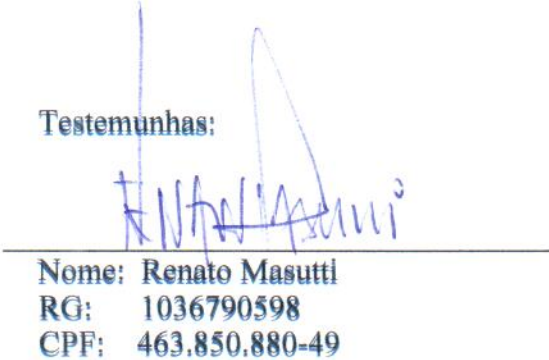 Testemunhas:
Renato Masutti
Nome: Renato Masutti
RG: 1036790598
CPF: 463.850.880-49